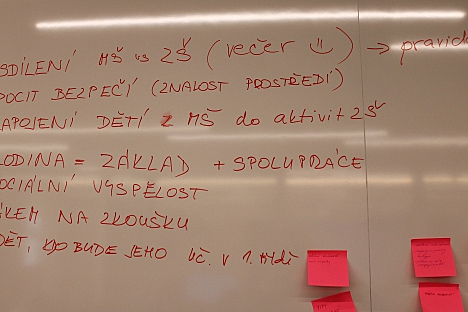 SDÍLENÍ MŠ vs ZŠ (večer ☺) → pravid
POCIT BEZPEČÍ (ZNALOST PROSTŘEDÍ)
APOJENÍ DĚTÍ Z MŠ do aktivit ZŠ
ODINA = ZÁKLAD + SPOLUPRÁCE
OCIÁLNÍ VYSPĚLOST
ÁKEM NA ZKOUŠKU
DĚT, KDO BUDE JEHO uč. v 1. třídě